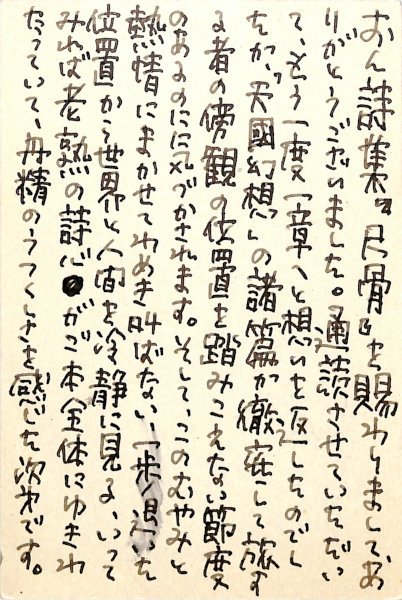 おん詩集『尺骨』を賜わりまして、あ
りがとうございました。通読させていただい
て、もう一度一章へと想いを反したのでし
たが、「天國幻想」の諸篇が徹底して旅す
る者の傍観の位置を踏みこえない節度
のあるのに気づかされます。そして、このむやみと
熱情にまかせてわめき叫ばない、一歩退いた
位置から世界と人間を冷静に見る、いって
みれば老熟の詩心がご本全体にゆきわ
たっていて、丹精のうつくしさを感じた次第です。